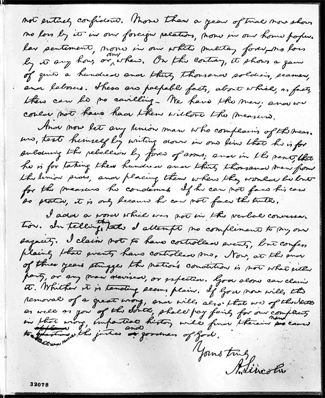 not entirely confident. More than a year of trial now shows
no loss by it in our foreign relations, none in our home popu-
lar sentiment, none in our white military force, no loss
by it any how, or any where. On the contrary, it shows a gain
of quite a hundred and thirty thousand soldiers, seamen,
and laborers. These are palpable facts, about which, as facts,
there can be no cavilling. We have the men; and we
could not have had them without the measure.
And now let any Union man who complains of the meas-
ure, test himself by writing down in one line that he is for
subduing the rebellion by force of arms; and in the next, that
he is for taking these hundred and thirty thousand men from
the Union side, and placing them where they would be but
for the measure he condemns. If he can not face his case
so stated, it is only because he can not face the truth.
I add a word which was not in the verbal conversa-
tion. In telling this tale I attempt no compliment to my own
sagacity. I claim not to have controlled events, but confess
plainly that events have controlled me. Now, at the end
of three years struggle the nation's condition is not what either
party, or any man devised, or expected. God alone can claim
it. Whither it is tending seems plain. If God now wills the
removal of a great wrong, and wills also that we of the North
as well as you of the South, shall pay fairly for our complicity
in that wrong, impartial history will find therein new cause
the justice and goodness of God.
Yours truly
A. Lincoln
32078